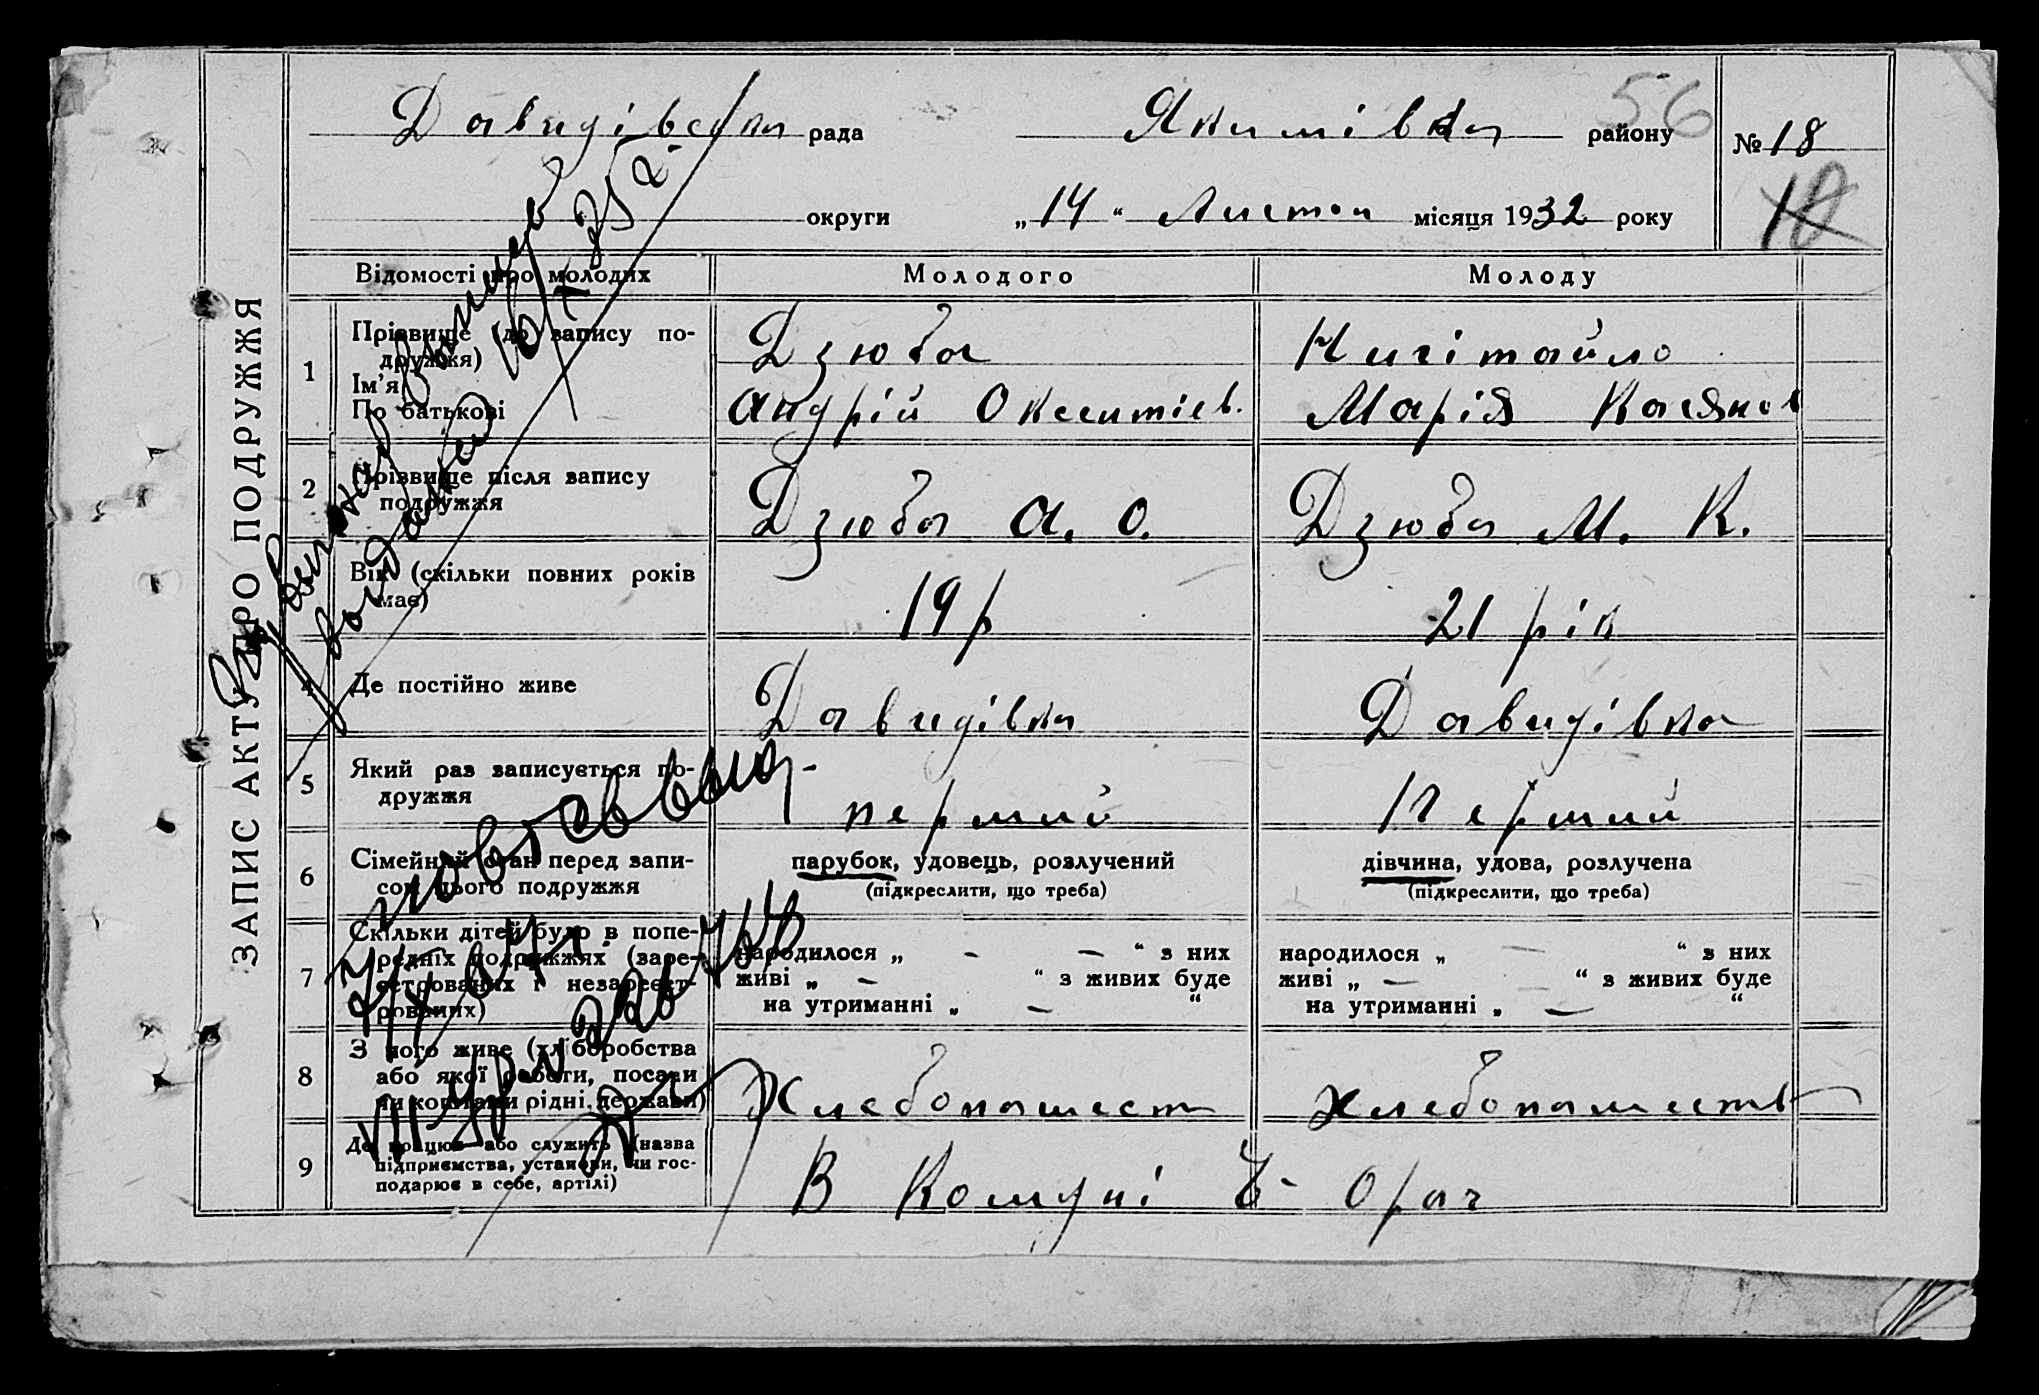 56
Давидівська рада Якимівка району № 18
округи „14“ Листоп місяця 1932 року
18
ЗАПИС АКТУ ПРО ПОДРУЖЖЯ
Відомості про молодих Молодого Молоду
1 Прізвище (до запису по-
дружжя)
Ім’я
По батькові
Дзюба
Андрій Оксентіев.
Марія Касянов
2 Прізвище після запису
подружжя
Дзюба А. О. Дзюба М. К.
Вік (скільки повних років
має)
19 р 21 рік
4 Де постійно живе Давидівка Давидівка
5 Який раз записується по-
дружжя
перший Перший
6 Сімейний стан перед запи-
сом цього подружжя
парубок, удовець, розлучений
(підкреслити, що треба)
дівчина, удова, розлучена
(підкреслити, що треба)
7 Скільки дітей було в попе-
редніх подружжях (заре-
єстрованих і незареєст-
рованих)
народилося „ - — “ з них
живі „ — “ з живих буде
на утриманні „ — “
народилося „ — “ з них
живі „ — “ з живих буде
на утриманні „ — “
8 З чого живе (хліборобства
або якої роботи, посади
чи коштами рідні, держави)
Хлебопашест хлебопашеств
9 Де працює або служить (назва
підприємства, установи, чи гос-
подарює в себе, артілі)
В Комуні Б- Орач